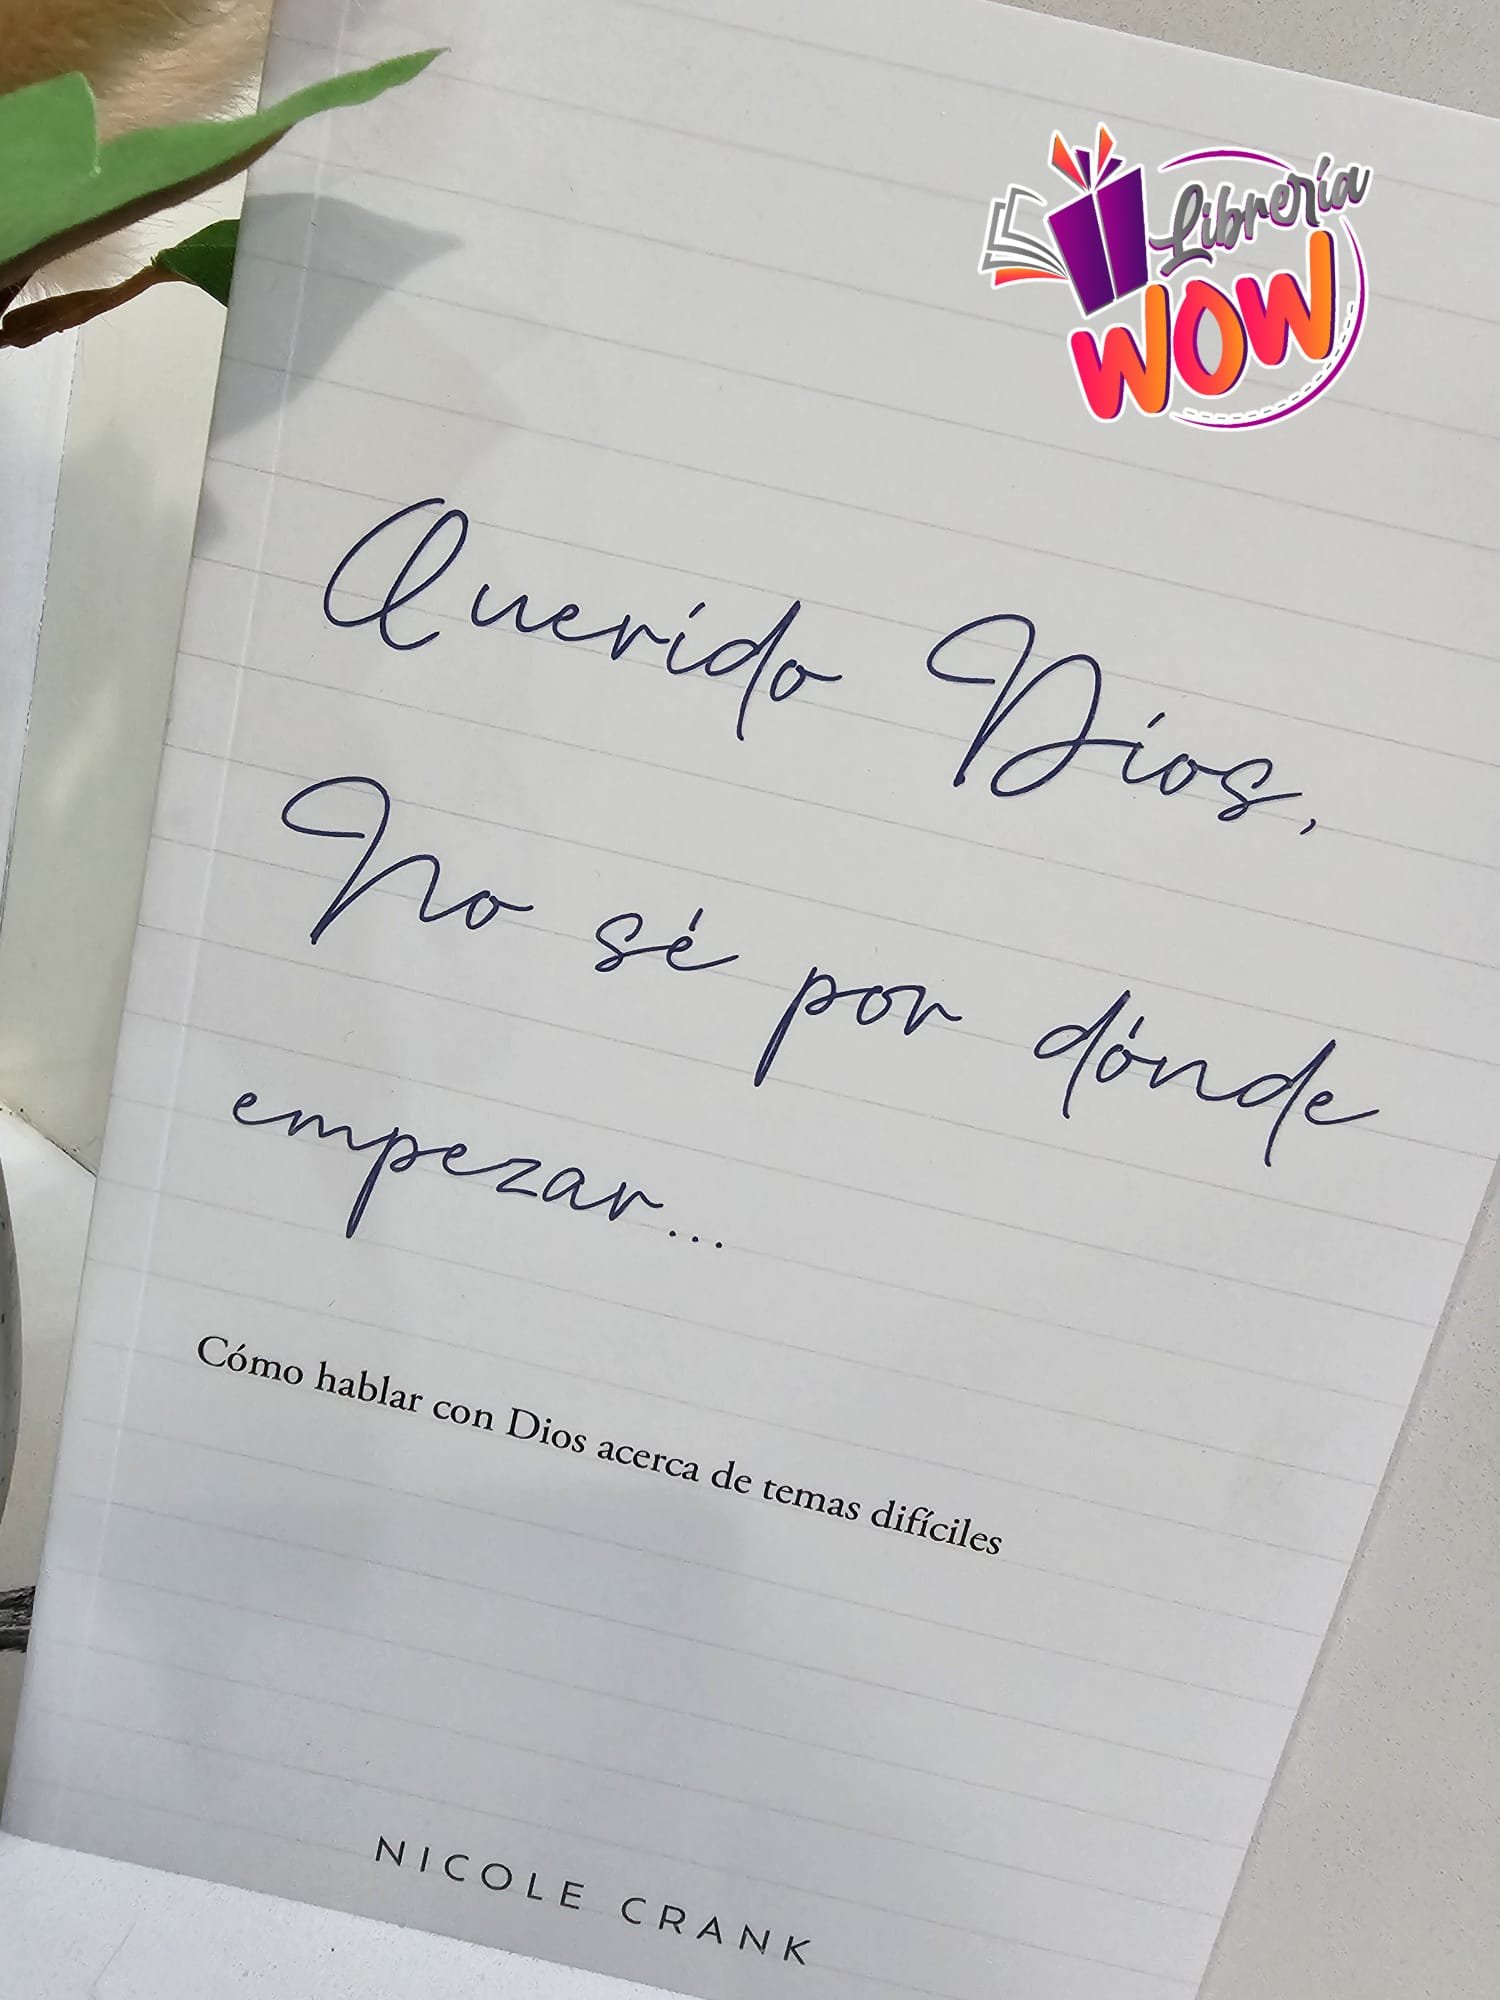 Librería
WOW
Querido Dios,
No sé por dónde
empezar...
Cómo hablar con Dios acerca de temas difíciles
NICOLE CRANK